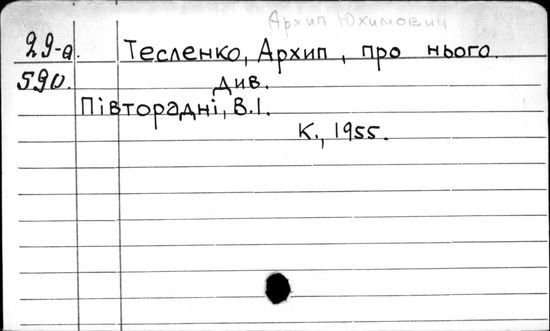 Архип Юхимович
29-а. Тесленко, Архип, про нього.
590. див.
Півторадні, В.І.
К., 1955.